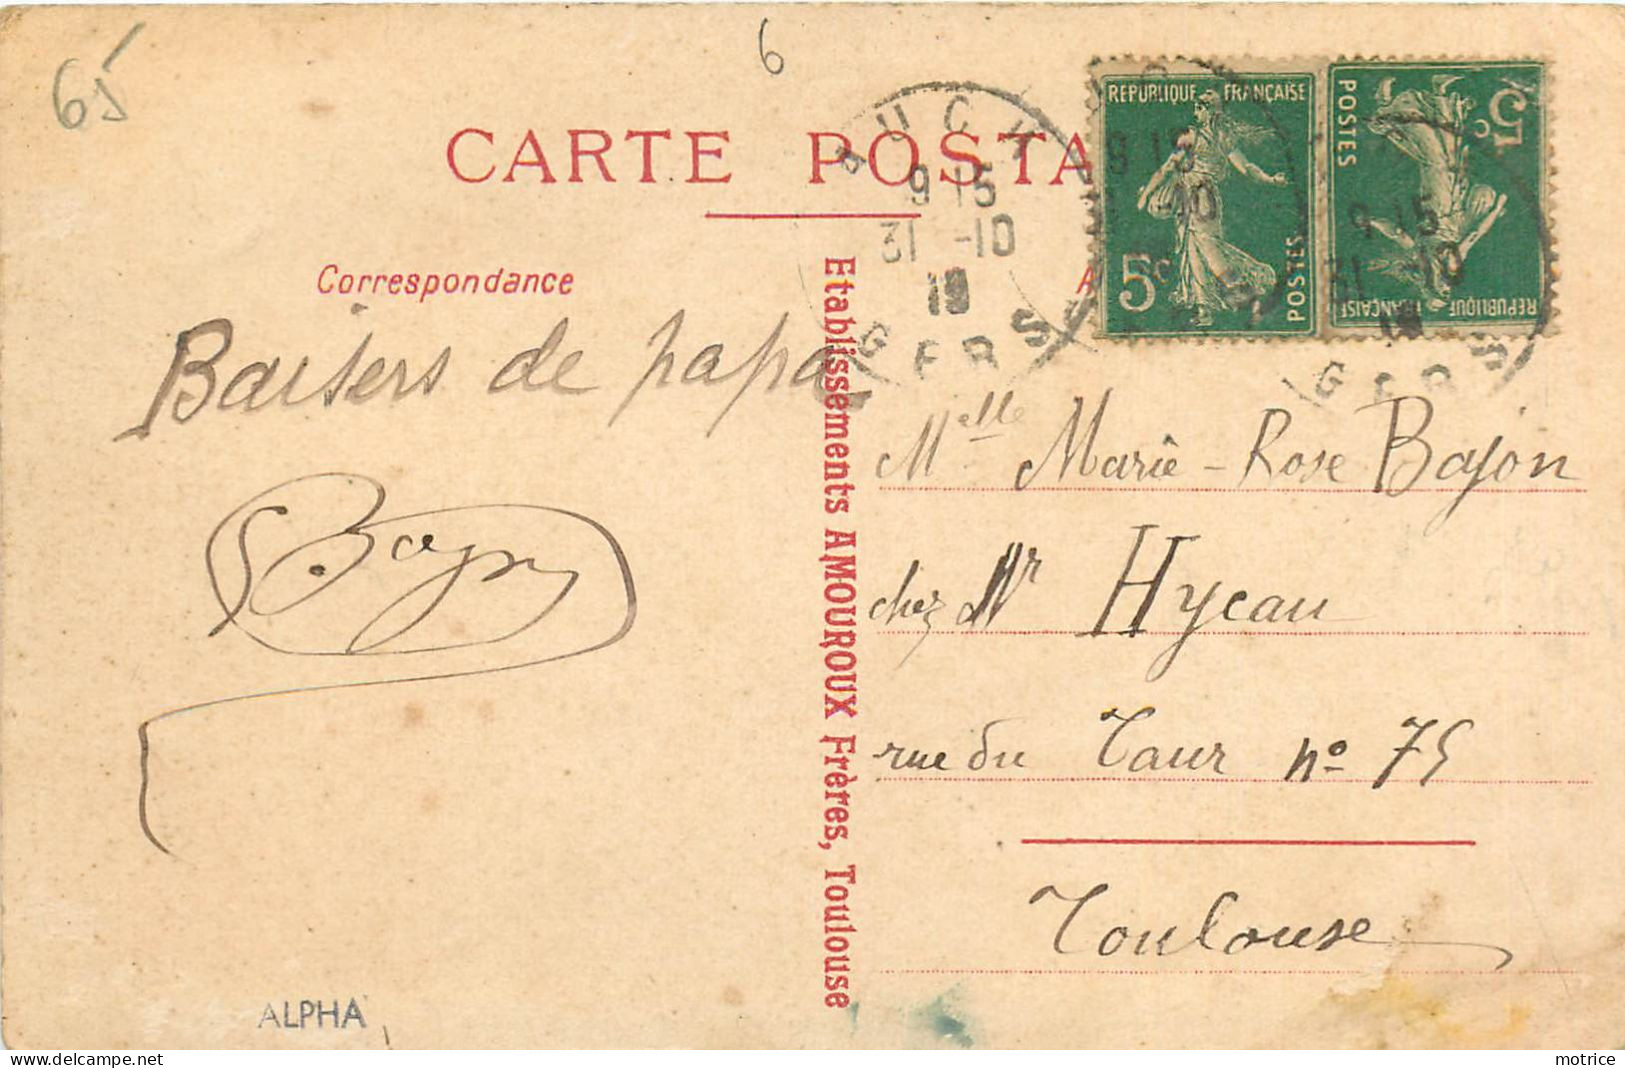 65
6
CARTE POSTA
Correspondance
A
AUCH
9 15
31 -10
19
GERS
REPUBLIQUE FRANÇAISE
5c
POSTES
9 15
-10
REPUBLIQUE FRANÇAISE
5c
POSTES
9 15
31 -10
19
GERS
Baisers de papa
Bajon
Etablissements AMOUROUX Frères, Toulouse
Melle Marie-Rose Bajon
chez Mr Hycau
rue du Taur no 75
Toulouse
ALPHA
delcampe.net
motrice